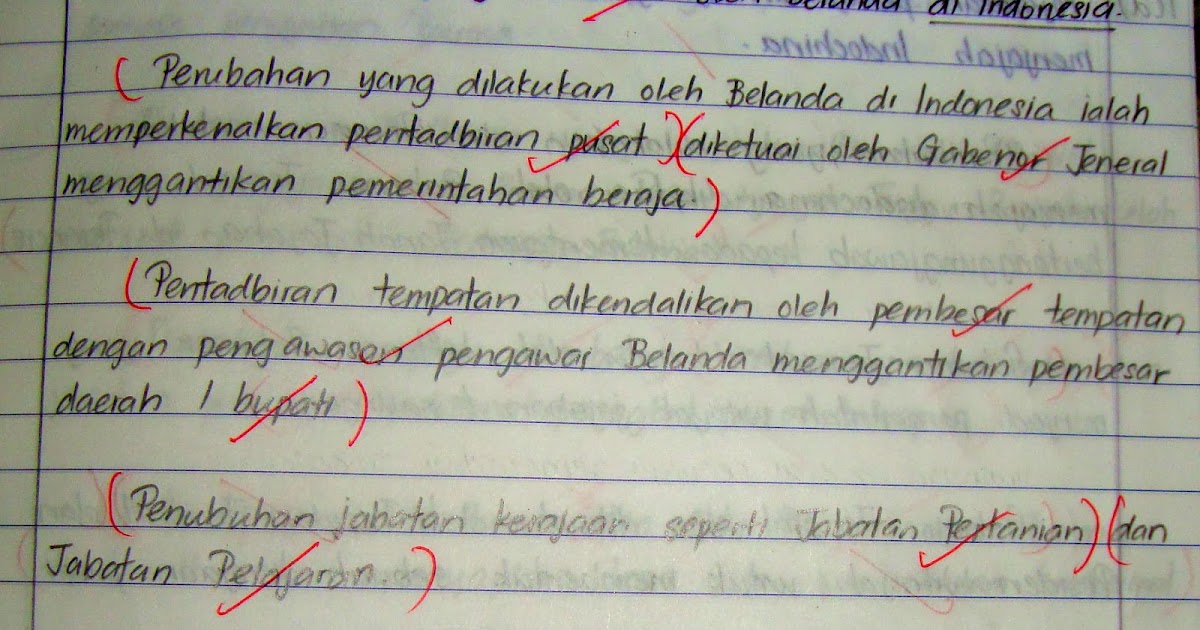 oleh Belanda di Indonesia.
( Perubahan yang dilakukan oleh Belanda di Indonesia ialah
memperkenalkan pentadbiran pusat )( diketuai oleh Gabenor Jeneral
menggantikan pemerintahan beraja. )
( Pentadbiran tempatan dikendalikan oleh pembesar tempatan
dengan pengawasan pengawai Belanda menggantikan pembesar
daerah / bupati )
( Penubuhan jabatan kerajaan seperti Jabatan Pertanian )( dan
Jabatan Pelajaran. )